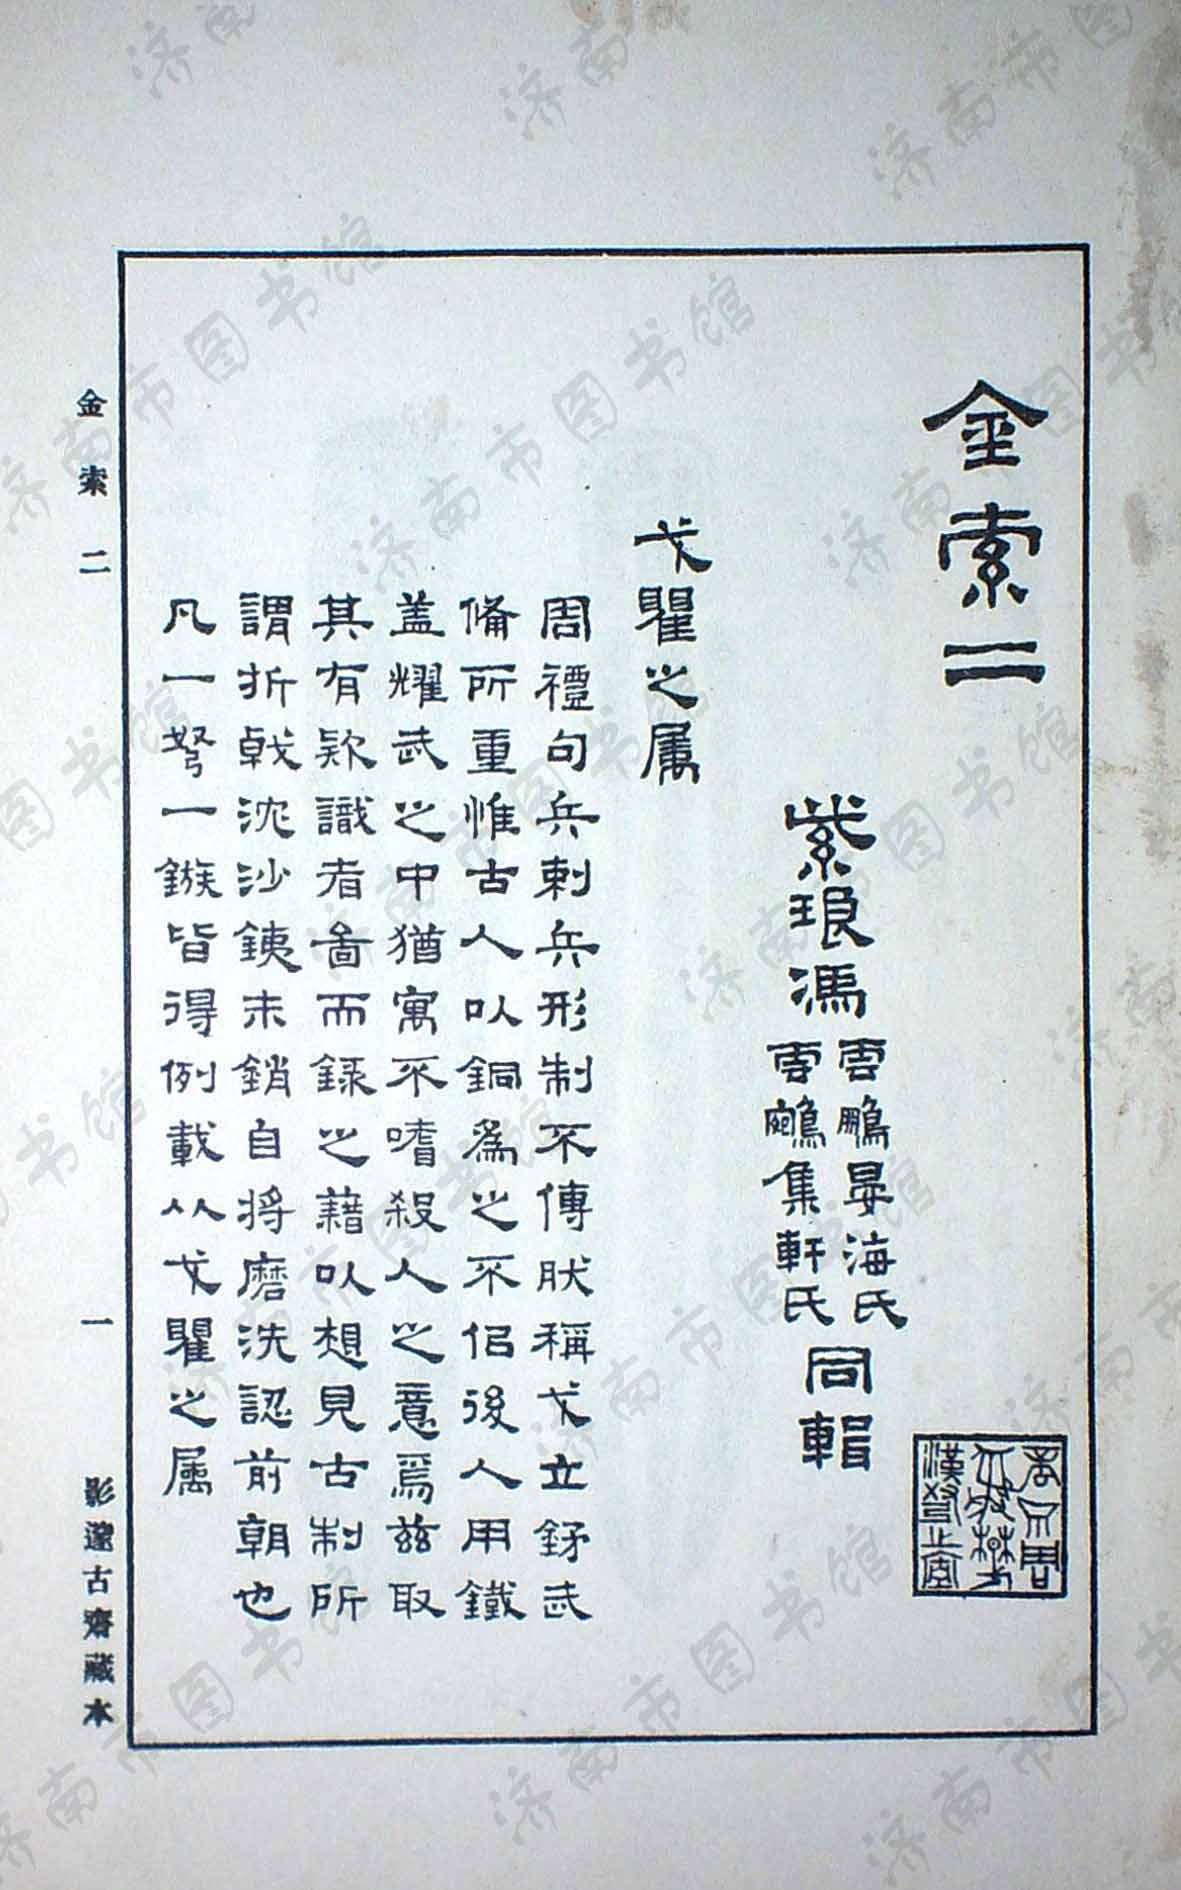 金索二
紫琅馮
雲鵬晏海氏
雲鵷集軒氏
同輯
戈瞿之属
周禮句兵刺兵形制不傳肰稱戈立武
俻所重惟古人以銅為之不侣後人用鐵
盖耀武之中猶寓不嗜殺人之意焉兹取
其有欵識者啚而録之藉以想見古制所
謂折戟沈沙銕未銷自将磨洗認前朝也
凡一弩一鏃皆得例載从戈瞿之属
金索二
一
影邃古齋藏本
济南市图书馆